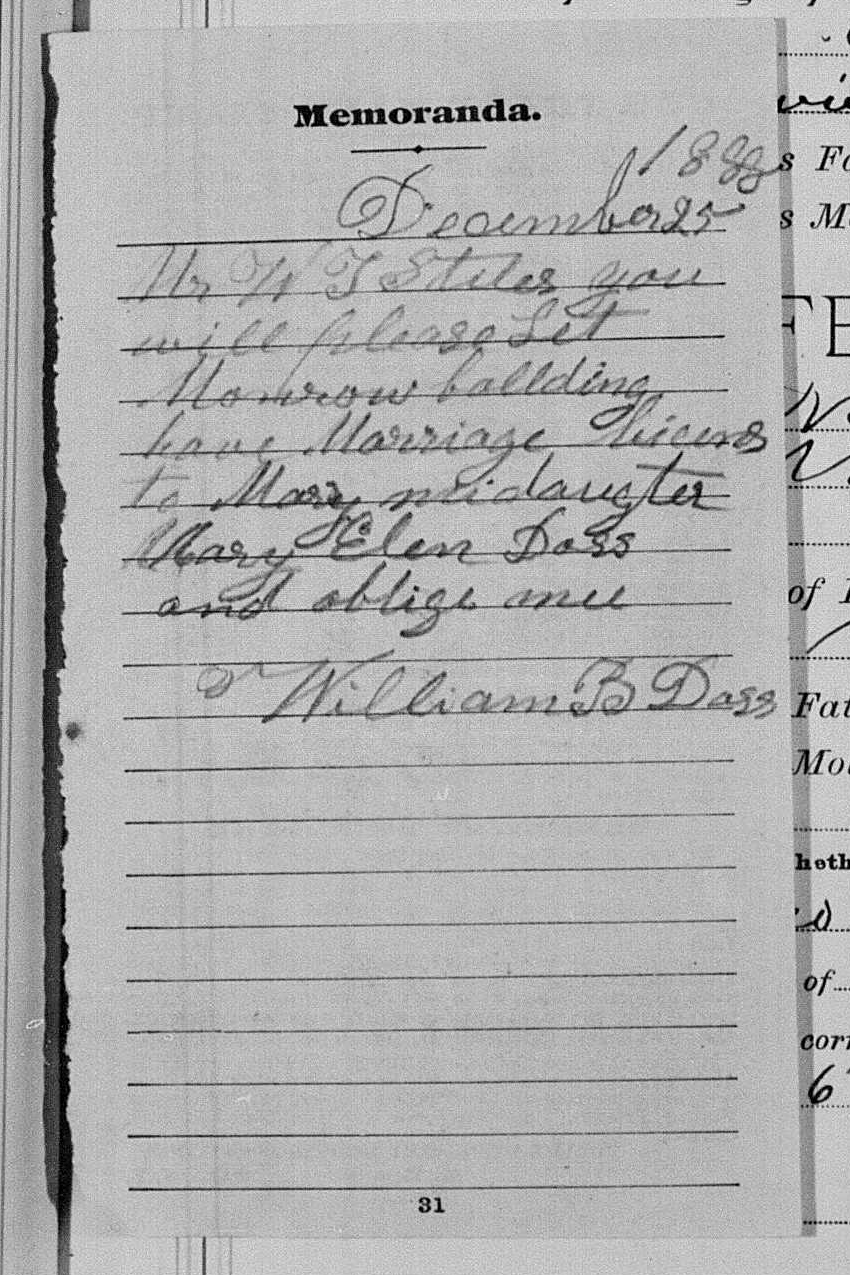 Memoranda.
1888
December 25
Mr W T Stiles you
will please Let
Monrow bollding
have Marriage licens
to Mary mi daugter
Mary Elen Doss
and oblige mee
William B Doss
31
s Fo
s M
FE
of
Fat
Mo
heth
of
corr
6